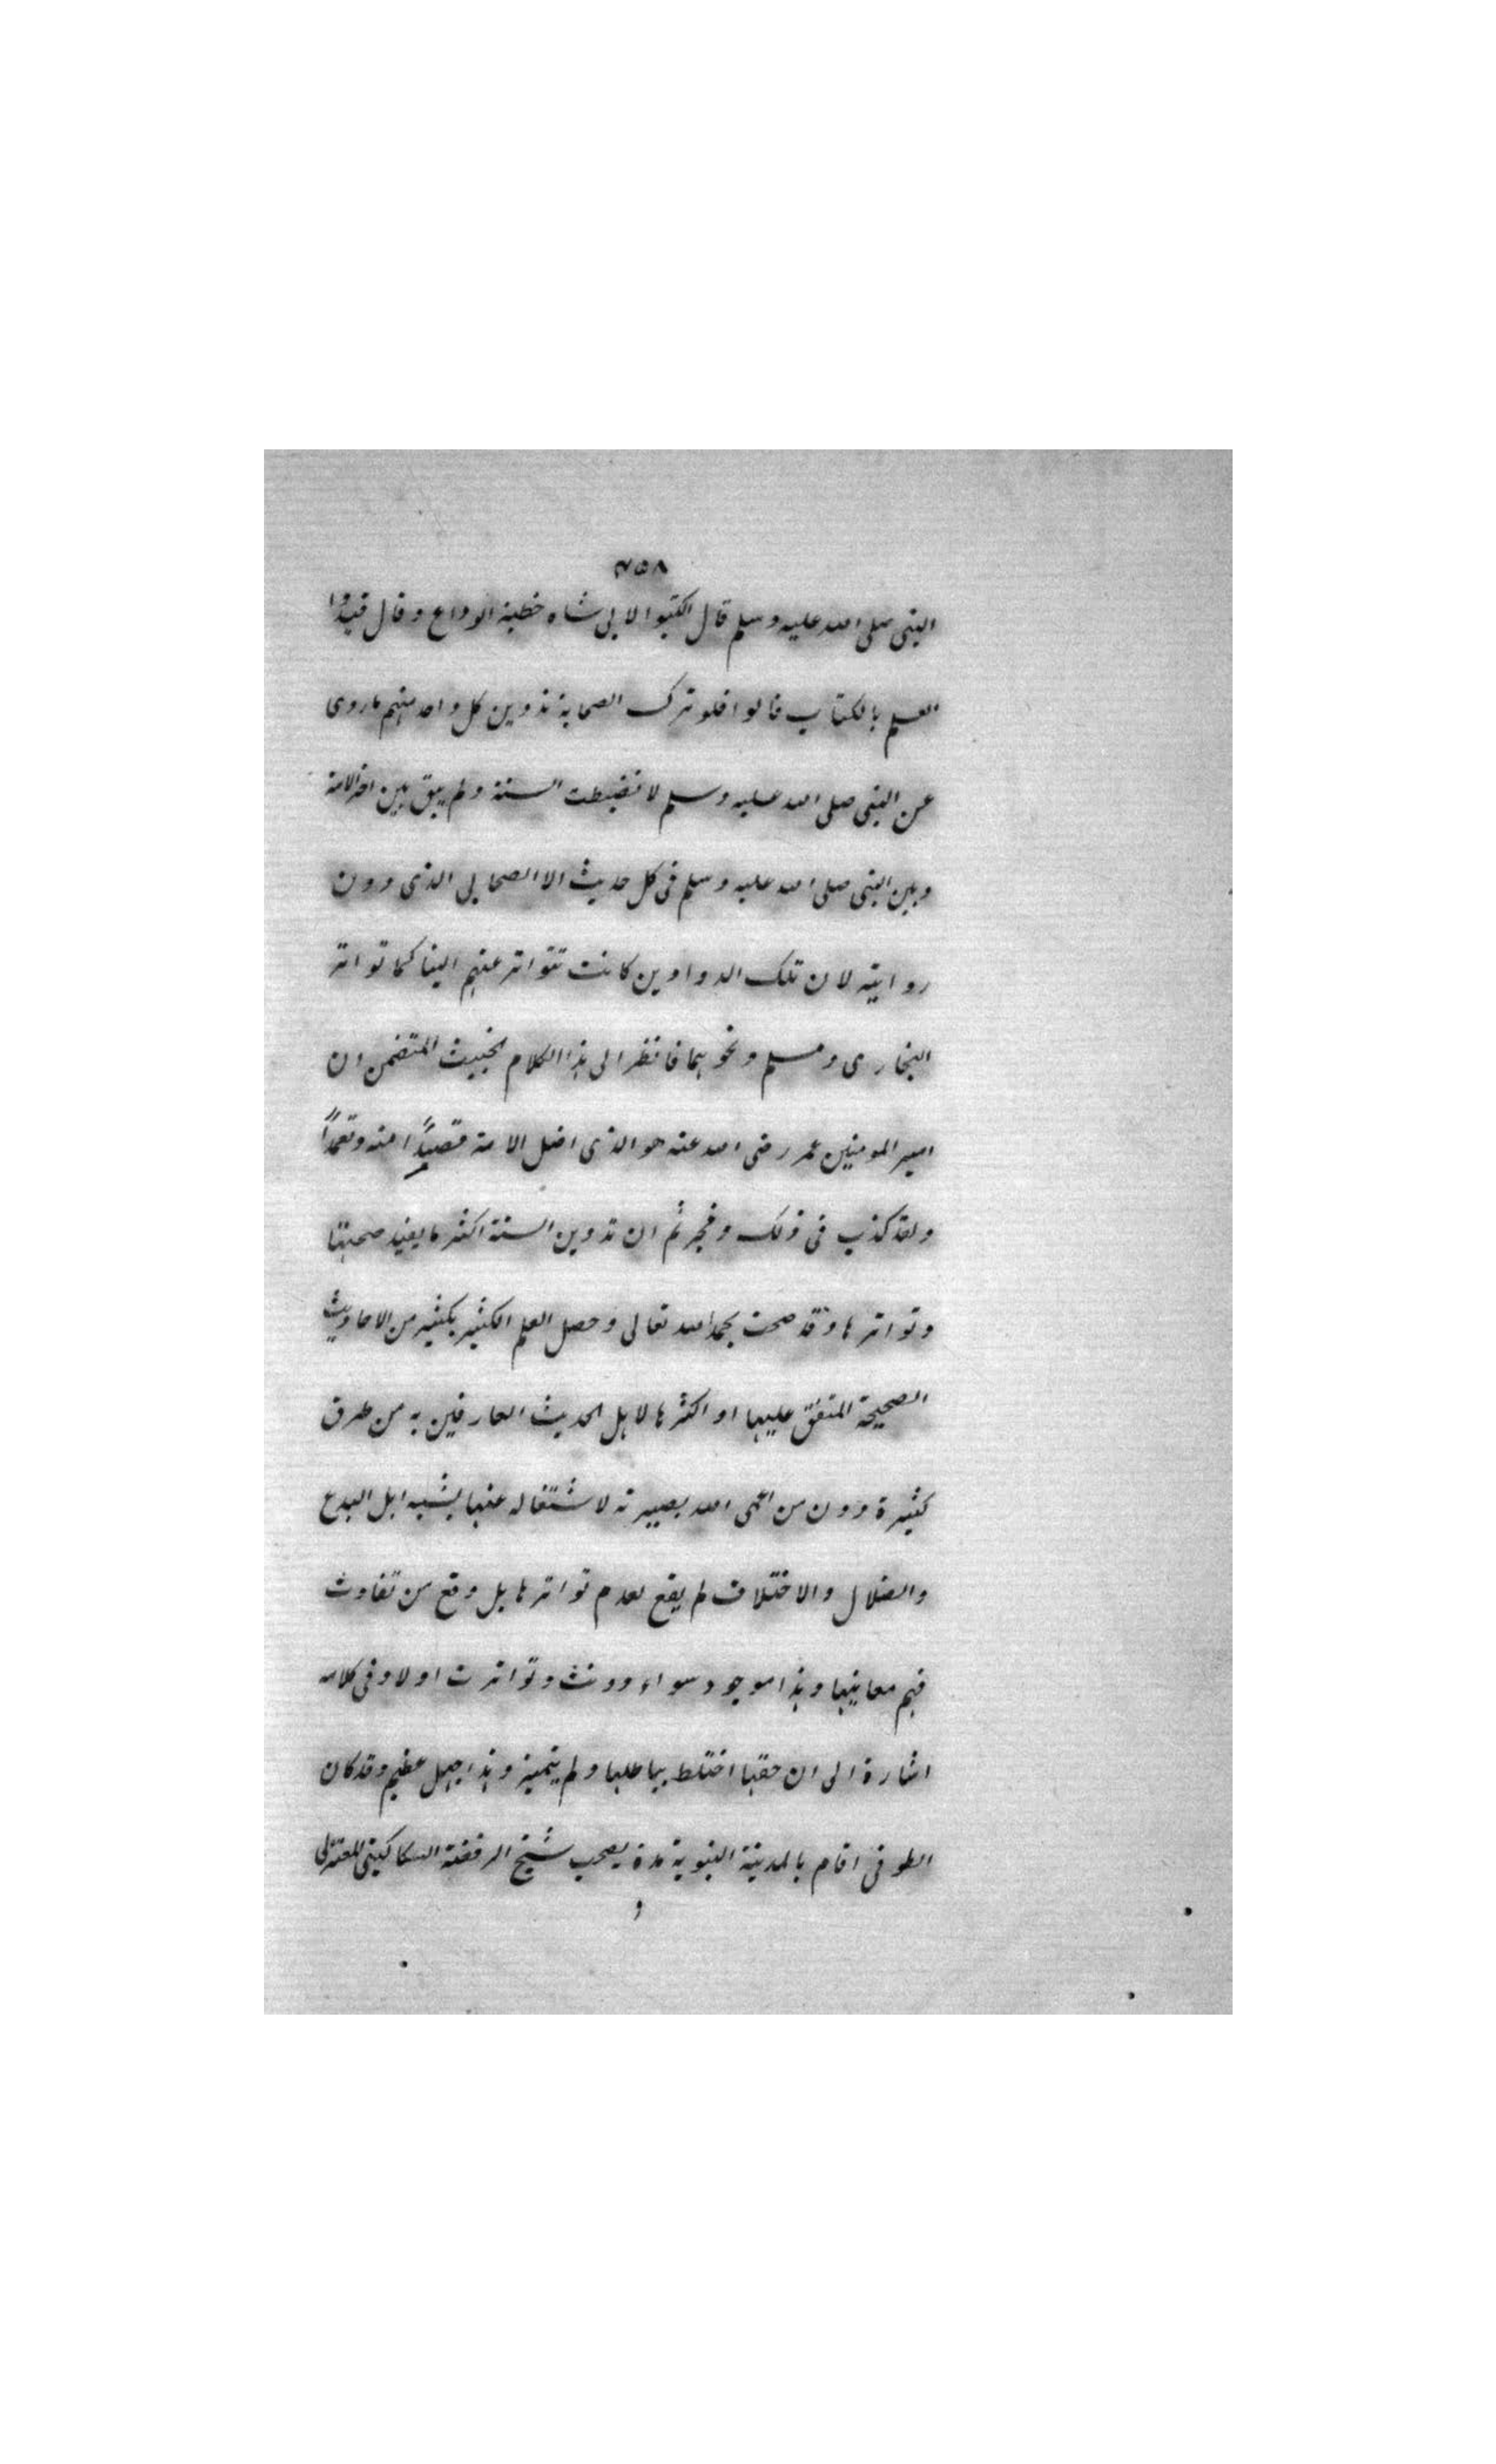 ٧٥٨
النبى صلى الله عليه وسلم قال اكتبوا لابى شاه خطبة الوداع وقال قيدوا
العلم بالكتاب قالوا فلو ترك الصحابة تدوين كل واحد منهم ما روى
عن النبى صلى الله عليه وسلم لانضبطت السنة ولم يبق بين اخر الامة
وبين النبى صلى الله عليه وسلم فى كل حديث الا الصحابى الذى دون
روايته لان تلك الدواوين كانت تتواتر عنهم الينا كما تواتر
البخارى ومسلم ونحوهما فانظر الى هذا الكلام الخبيث المتضمن ان
امير المومنين عمر رضى الله عنه هو الذى اضل الامة قصدًا منه وتعمدًا
ولقد كذب فى ذلك وفجر ثم ان تدوين السنة اكثر ما يفيد صحتها
وتواترها وقد صحت بحمد الله تعالى وحصل العلم الكثير بكثير من الاحاديث
الصحيحة المتفق عليها او اكثرها لاهل الحديث العارفين به من طرق
كثيرة دون من اعمى الله بصيرته لاشتغاله عنها بشبه اهل البدع
والضلال والاختلاف لم يقع لعدم تواترها بل وقع من تفاوت
فهم معانيها وهذا موجود سواء دونت وتواترت اولا وفى كلامه
اشارة الى ان حقها اختلط بباطلها ولم يتميز وهذا جهل عظيم وقد كان
الطوفى اقام بالمدينة النبوية مدة يصحب شيخ الرفضة السكاكينى المعتزلى
و